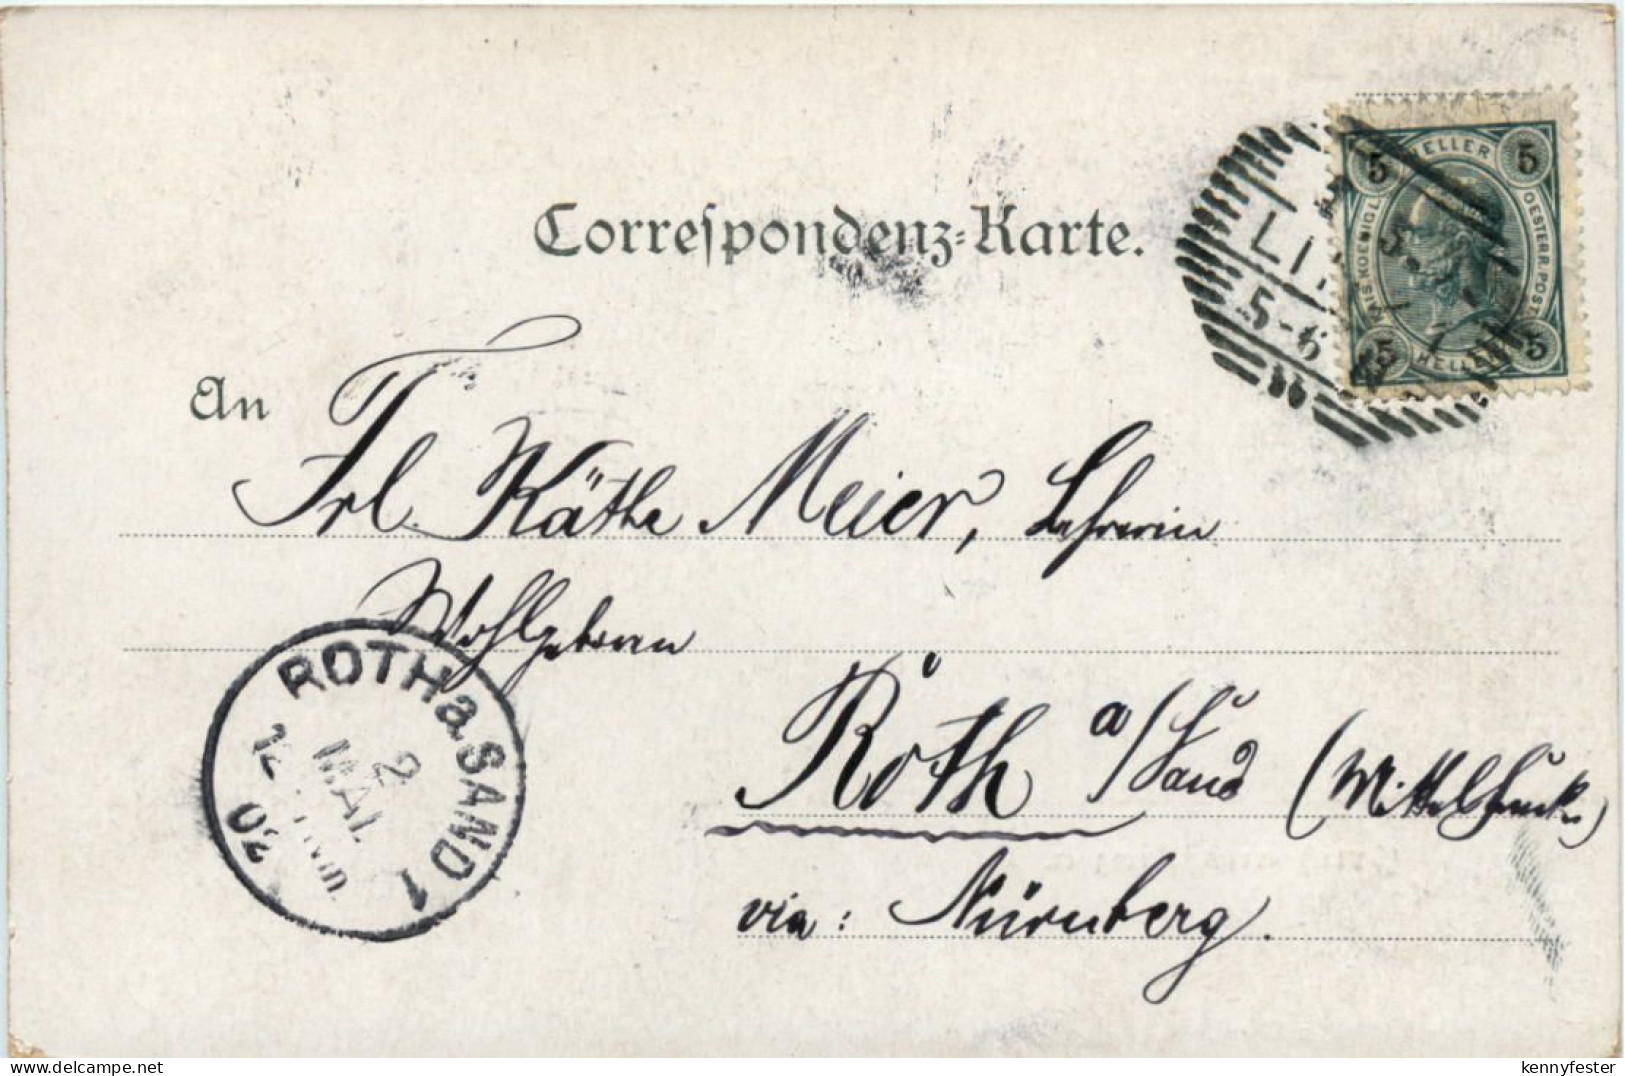 Correſpondenz-Karte.
5 HELLER 5
KAIS. KOENIGL. OESTERR. POST
5 HELLER 5
LI
5-6
An
Frl. Käthe Meier, Lehrerin
Wohlgeboren
ROTH a. SAND 1
2
MAI.
12
02
Roth a/Sand (Mittelfrank.)
via: Nürnberg.
www.delcampe.net
kennyfester